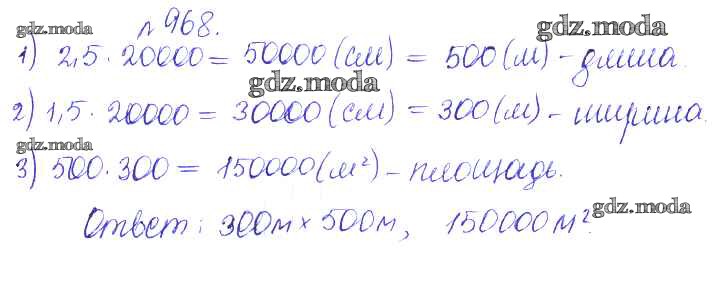 gdz.moda № 968. gdz.moda
1) 2,5 · 20000 = 50000 (см) = 500 (м) - длина.
gdz.moda
2) 1,5 · 20000 = 30000 (см) = 300 (м) - ширина.
gdz.moda
3) 500 · 300 = 150000 (м²) - площадь.
gdz.moda
Ответ: 300м × 500м, 150000 м².